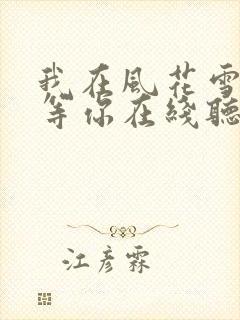 我在風花雪
等你在綫聽
江彦霖